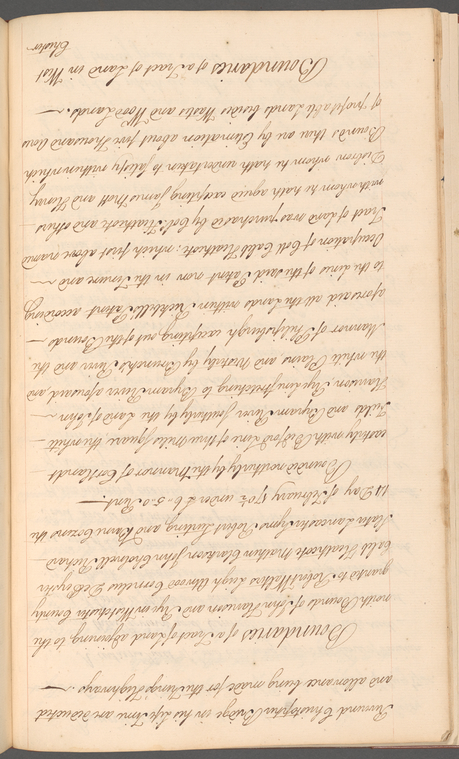 Reverend Christopher Bridge in his life Time are deducted
and allowance being made for the Kings Highways.—
Boundaries of a Tract of Land adjoining to the
north Bounds of John Harrison and Rye in Westchester County
granted to Robert Walters Leigh Atwood Cornelius DePeyster
Caleb Heathcote Mathew Clarkson John Cholwell Richard
Slater Lancaster Syms Robert Lurting and Barne Cosens the
14 Day of February 170½ under £6..5..0 Rent.—
Bounded northerly by the Mannor of Cortlandt
easterly with Bedford Line of three Miles Square the white
Fields and Byram River Southerly by the Land of John
Harrison Rye Line stretching to Byram River aforesaid and
the white Plains and Westerly by Brunchs River and the
Mannor of Philipsburgh excepting out of the Bounds
aforesaid all the Lands within Richbills Patent according
to the lines of the said Patent now in the Tenure and
Occupation of Coll Caleb Heathcote: which first above named
Tract of Land was purchased by Coll. Heathcote and others
with whom he hath agreed excepting James Mott and Henry
Disbrow whom he hath undertaken to satisfy within which
Bounds there are by Estimation about five Thousand Acres
of profitable Lands besides Wastes and Wood Lands.—
Boundaries of a Tract of Land in West
Chester